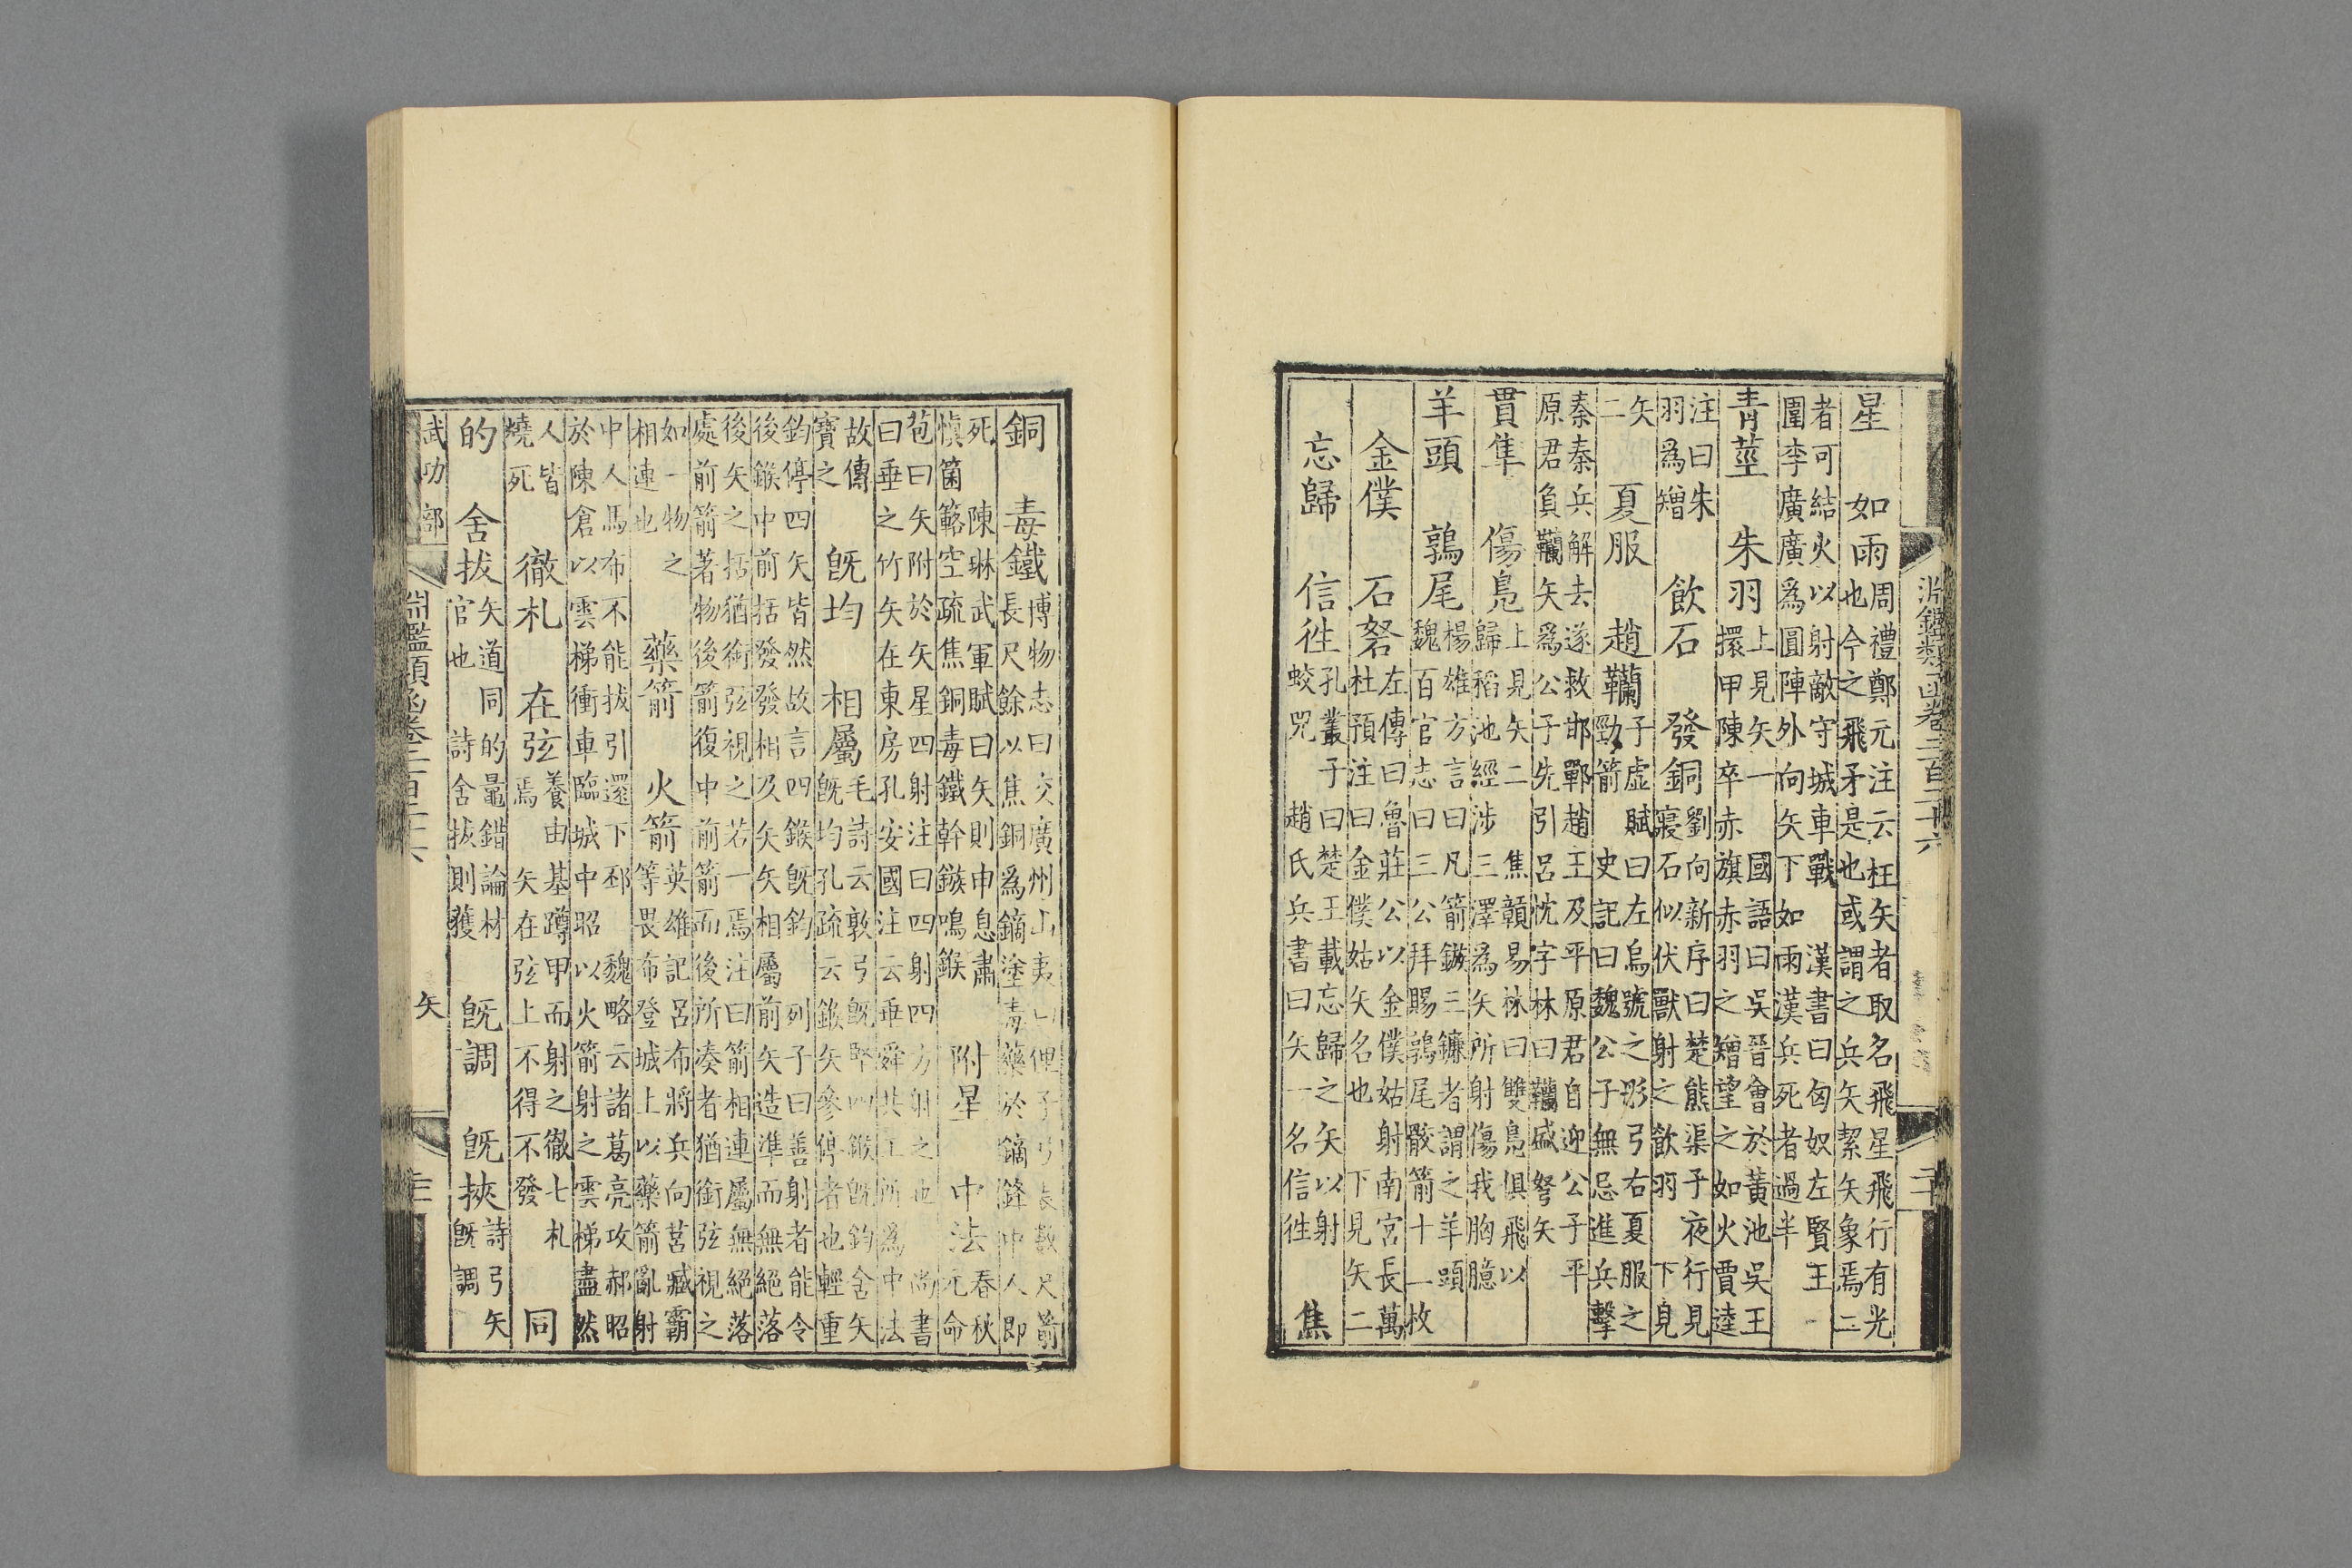 星　如雨周禮鄭元注云枉矢者取名飛星飛行有光
也今之飛矛是也或謂之兵矢絜矢象焉二
者可結火以射敵守城車戰　漢書曰匈奴左賢王
圍李廣廣爲圓陣外向矢下如雨漢兵死者過半
青莖　朱羽上見矢一　國語曰吳晉會於黃池吳王
擐甲陳卒赤旗赤羽之矰望之如火賈逵
注曰朱
羽爲矰　飲石　發銅劉向新序曰楚熊渠子夜行見
寢石似伏獸射之飲羽　下見
矢
二　夏服　趙韊子虛賦曰左烏號之彫弓右夏服之
勁箭　史記曰魏公子無忌進兵擊
秦秦兵解去遂救邯鄲趙王及平原君自迎公子平
原君負韊矢爲公子先引呂忱字林曰韊盛弩矢
貫隼　傷鳧上見矢二　焦贛易林曰雙鳧俱飛以
歸稻池經涉三澤爲矢所射傷我胸臆
羊頭　鶉尾楊雄方言曰凡箭鏃三鐮者謂之羊頭
魏百官志曰三公拜賜鶉尾骹箭十一枚
金僕　石砮左傳曰魯莊公以金僕姑射南宮長萬
杜預注曰金僕姑矢名也　下見矢二
忘歸　信徃孔叢子曰楚王載忘歸之矢以射
蛟兕　趙氏兵書曰矢一名信徃　焦
淵鑑類函卷二百二十六
二十
銅　毒鐵博物志曰交廣州山夷曰俚子弓長數尺箭
長尺餘以焦銅爲鏑塗毒藥於鏑鋒中人即
死　陳琳武軍賦曰矢則申息肅
慎箘簵空疏焦銅毒鐵幹鏃鳴鍭　附星　中法春秋
元命
苞曰矢附於矢星四射注曰四射四方射之也　尚書
曰垂之竹矢在東房孔安國注云垂舜共工所爲中法
故傳
寶之　旣均　相屬毛詩云敦弓旣堅四鍭旣鈞舍矢
旣均孔疏云鍭矢參停者也輕重
鈞停四矢皆然故言四鍭旣鈞　列子曰善射者能令
後鏃中前括發發相及矢矢相屬前矢造準而無絕落
後矢之括猶銜弦視之若一焉注曰箭相連屬無絕落
處前箭著物後箭復中前箭而後所湊者猶銜弦視之
如一物之
相連也　藥箭　火箭英雄記呂布將兵向莒臧霸
等畏布登城上以藥箭亂射
中人馬布不能拔引還下邳　魏略云諸葛亮攻郝昭
於陳倉以雲梯衝車臨城中昭以火箭射之雲梯盡然
人皆
燒死　徹札　在弦養由基蹲甲而射之徹七札
焉　矢在弦上不得不發　同
的　舍拔矢道同的鼂錯論材
官也　詩舍拔則獲　旣調　旣挾詩弓矢
旣調
武功部
淵鑑類函卷二百二十六
矢